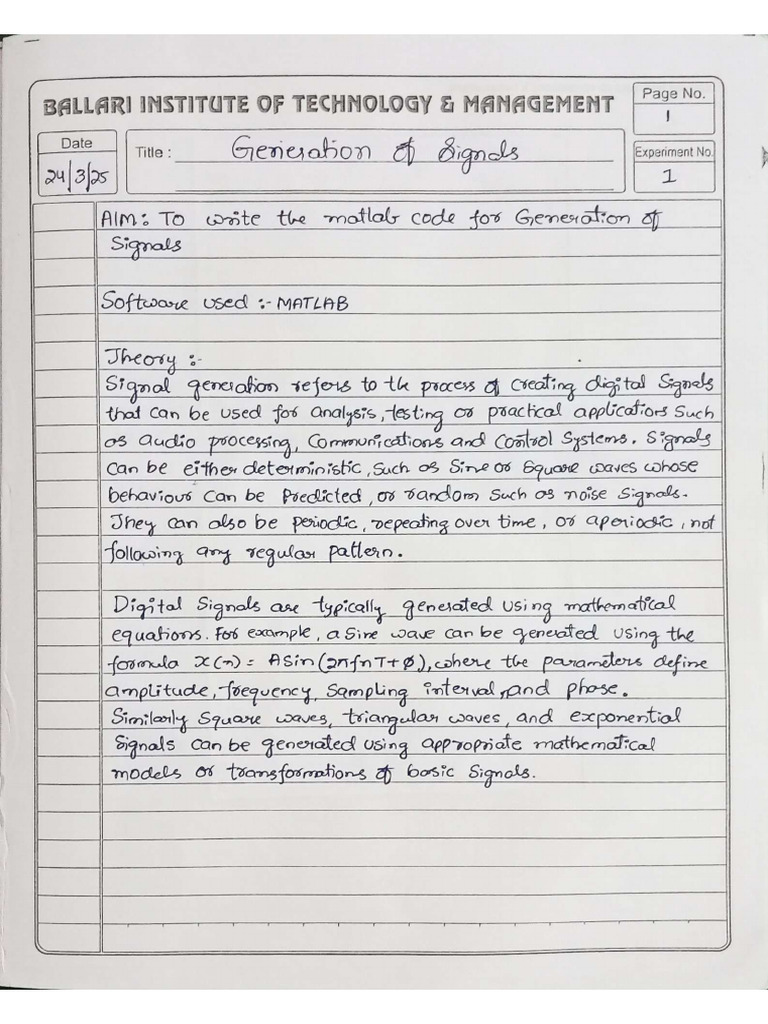 BALLARI INSTITUTE OF TECHNOLOGY & MANAGEMENT
Page No.
1
Date
24/3/25
Title : Generation of Signals
Experiment No.
1
AIM: To write the matlab code for Generation of
Signals
Software used :- MATLAB
Theory :-
Signal generation refers to the process of creating digital Signals
that can be used for analysis, testing or practical applications Such
as audio processing, Communications and Control Systems. Signals
Can be either deterministic, such as Sine or Square waves whose
behaviour Can be Predicted, or random Such as noise Signals.
They can also be periodic, repeating over time, or aperiodic, not
following any regular pattern.
Digital Signals are typically generated using mathematical
equations. For example, a Sine wave can be generated using the
formula x(n) = A sin(2πfnT+ϕ), where the parameters define
amplitude, frequency, Sampling interval, and phase.
Similarly Square waves, triangular waves, and exponential
Signals can be generated using appropriate mathematical
models or transformations of basic Signals.